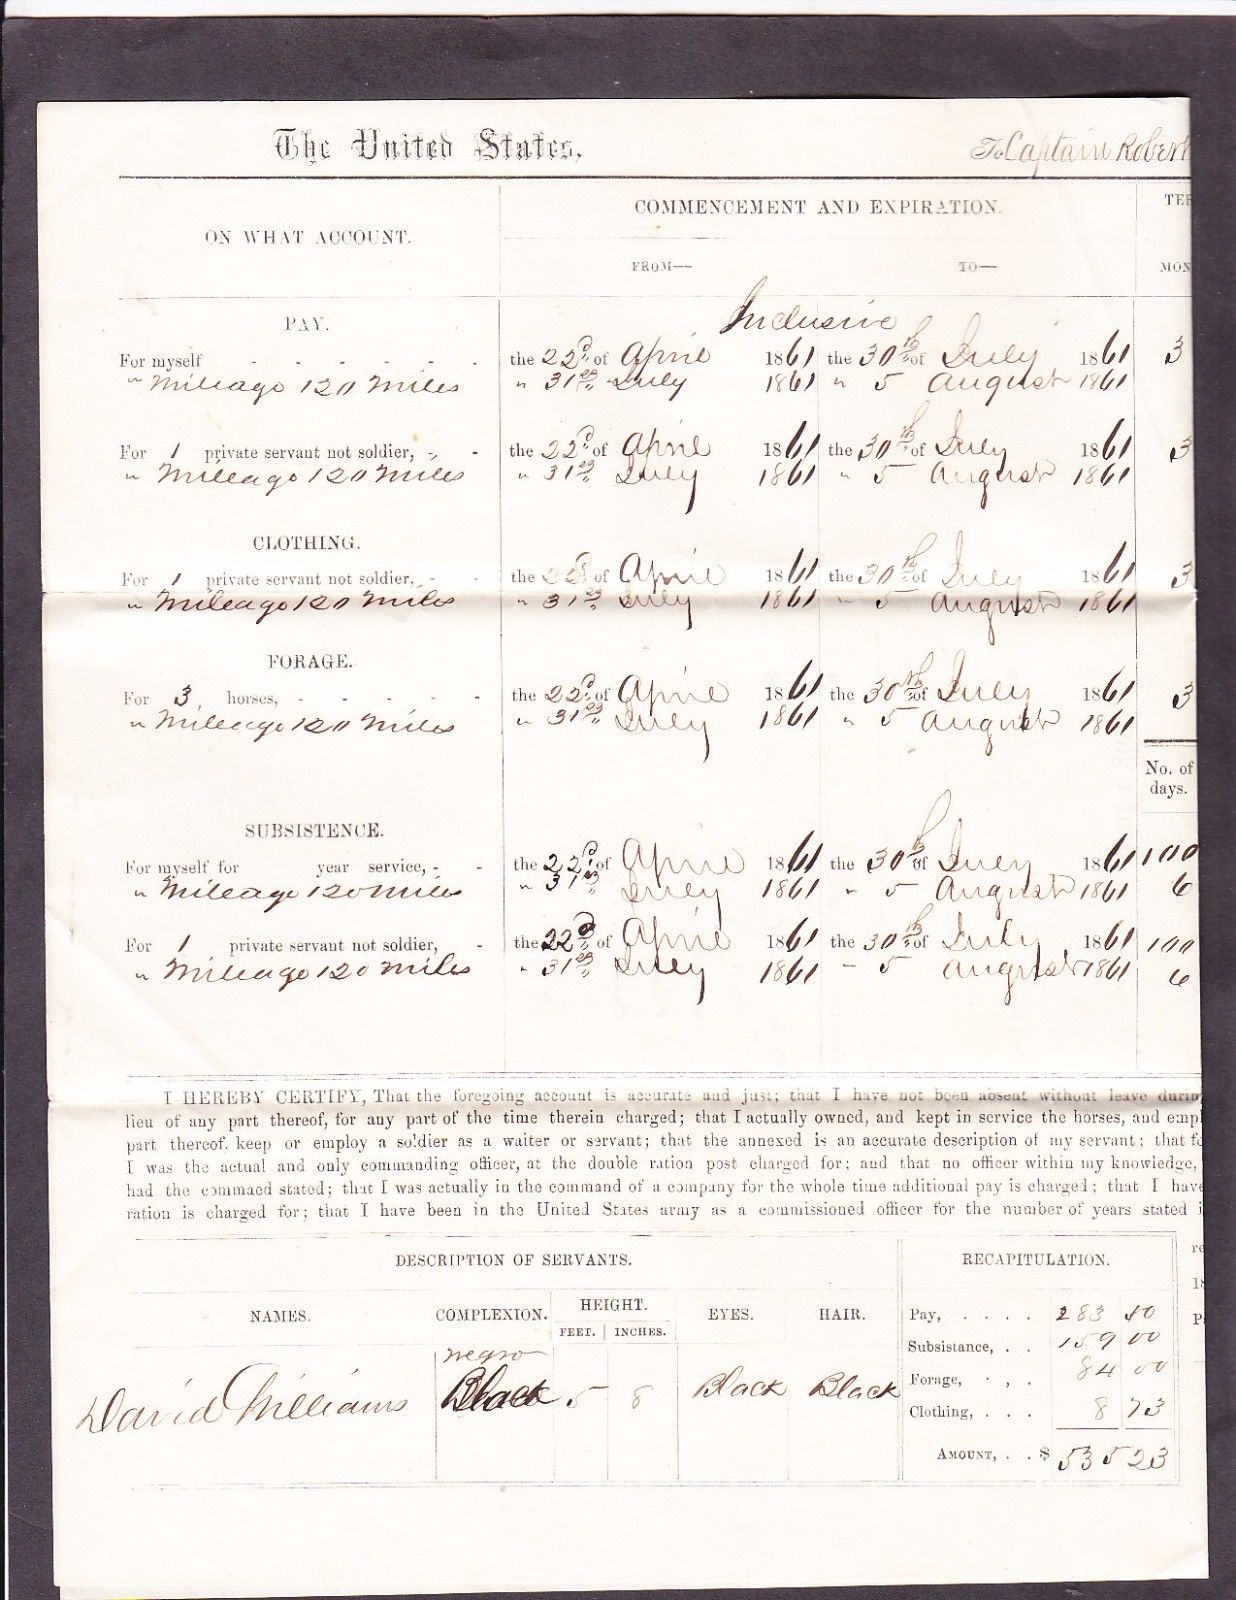 The United States, To Captain Robert
ON WHAT ACCOUNT. COMMENCEMENT AND EXPIRATION. TER
FROM— TO— MON
PAY. Inclusive
For myself - - - - - - the 22d of April 1861 the 30th of July 1861 3
" Mileage 120 Miles " 31st July 1861 " 5 August 1861
For 1 private servant not soldier, - - the 22d of April 1861 the 30th of July 1861 3
" Mileage 120 Miles " 31st July 1861 " 5 August 1861
CLOTHING.
For 1 private servant not soldier, - - the 22d of April 1861 the 30th of July 1861 3
" Mileage 120 Miles " 31st July 1861 " 5 August 1861
FORAGE.
For 3 horses, - - - - - the 22d of April 1861 the 30th of July 1861 3
" Mileage 120 Miles " 31st July 1861 " 5 August 1861
No. of
days.
SUBSISTENCE.
For myself for year service, - - the 22d of April 1861 the 30th of July 1861 100
" Mileage 120 Miles " 31st July 1861 " 5 August 1861 6
For 1 private servant not soldier, - the 22d of April 1861 the 30th of July 1861 100
" Mileage 120 Miles " 31st July 1861 " 5 August 1861 6
I HEREBY CERTIFY, That the foregoing account is accurate and just; that I have not been absent without leave durin
lieu of any part thereof, for any part of the time therein charged; that I actually owned, and kept in service the horses, and empl
part thereof. keep or employ a soldier as a waiter or servant; that the annexed is an accurate description of my servant; that fo
I was the actual and only commanding officer, at the double ration post charged for; and that no officer within my knowledge,
had the commaed stated; that I was actually in the command of a company for the whole time additional pay is charged; that I have
ration is charged for; that I have been in the United States army as a commissioned officer for the number of years stated i
DESCRIPTION OF SERVANTS. RECAPITULATION. re
18
NAMES. COMPLEXION. HEIGHT. EYES. HAIR. Pay, . . . . 283 50 P
FEET. INCHES.
Subsistance, . . 159 00
negro
David Williams Black 5 8 Black Black Forage, . , . 84 00
Clothing, . . . 8 73
AMOUNT, . . $ 535 23